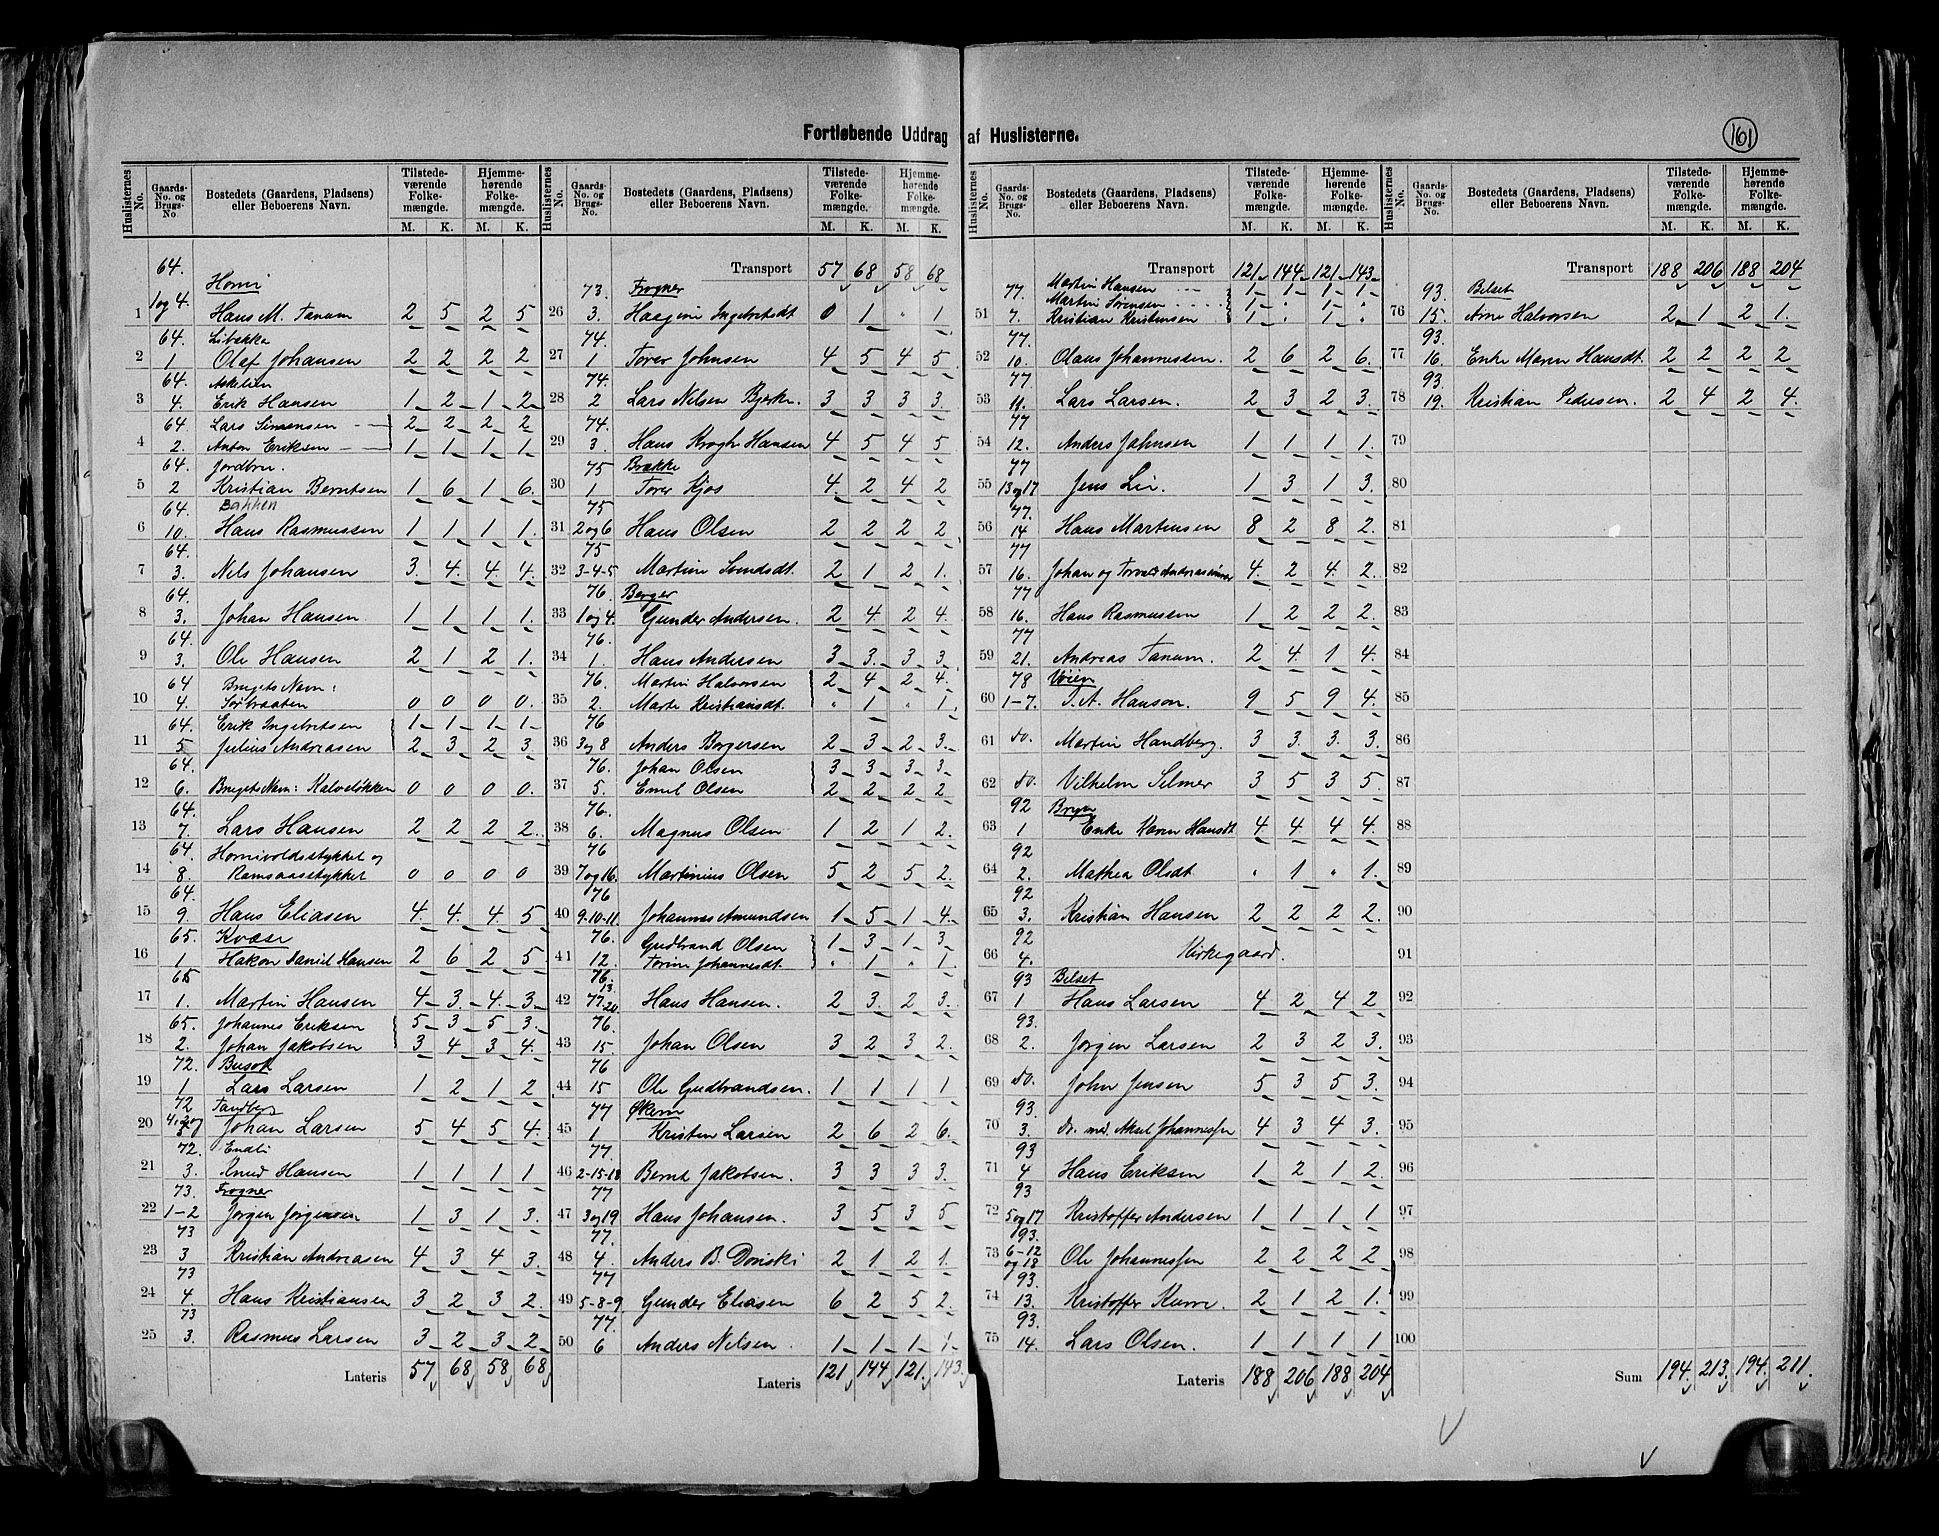 Fortløbende Uddrag af Huslisterne.
161
Huslisternes No. | Gaards-No. og Brugs-No. | Bostedets (Gaardens, Pladsens) eller Beboerens Navn. | Tilstedeværende Folkemængde. M. K. | Hjemmehørende Folkemængde. M. K.
64. Horni
1 1og4. Hans M. Tanum 2 5 2 5
64. Libakka
2 1 Olaf Johansen 2 2 2 2
64. Askelien
3 4. Erik Hansen 1 2 1 2
64. Lars Simensen 2 2 2 2
4 2. Anton Eriksen 1 1 1 1
64. Jordbru.
5 2 Kristian Berntsen 1 6 1 6.
64. Bakken
6 10. Hans Rasmussen 1 1 1 1.
64.
7 3. Nils Johansen 3. 4. 4 4.
64.
8 3. Johan Hansen 1 1 1 1.
64.
9 3. Ole Hansen 2 1 2 1.
64 Brugets Navn:
10 4. Sørbraaten 0 0 0 0.
64. Erik Ingebritsen 1 1 1 1
11 5 Julius Andreasen 2 3 2 3.
64.
12 6. Brugets Navn: Kalveløkken 0 0 0 0.
64.
13 7. Lars Hansen 2 2 2 2.
64. Hornivoldsstykket og
14 8. Ramsaasstykket 0 0 0 0
64.
15 9. Hans Eliasen 4. 4. 4. 5
65. Kvæse
16 1 Hakon Daniel Hansen 2 6 2 5
65
17 1. Martin Hansen 4 3. 4. 3.
65. Johannes Eriksen 5 3 5 3.
18 2. Johan Jakobsen 3 4 3 4.
72. Busok
19 1 Lars Larsen 1 2 1 2
72 Tandberg
20 Johan Larsen 5 4 5 4.
72. Endli
21 3. Knud Hansen 1 1 1 1
73. Frogner
22 1-2 Jørgen Jørgensen 1 3 1 3.
73
23 3 Kristian Andreasen 4 3 4 3.
73
24 4. Hans Kristiansen 3 2 3 2.
73
25 3. Rasmus Larsen 3 2 3 2.
Lateris 57 68 58 68
Transport 57 68 58 68
73. Frogner
26 3. Haagine Ingebretsdt 0 1 " 1
74.
27 1 Torer Johnsen 4 5 4 5
74.
28 2 Lars Nilsen Bjerke. 3 3 3 3.
74.
29 3. Hans Krogh Hansen 4 5 4 5
75 Brække
30 1 Torer Sjøs 4. 2 4 2
75
31 2og6 Hans Olsen 2 2 2 2
75
32 3-4-5 Martine Svendsdt. 2 1 2 1.
76. Berger
33 1og4. Gunder Andersen. 2 4. 2 4.
76.
34 1. Hans Andersen 3 3. 3 3.
76. Martin Halvorsen 2 4 2 4.
35 2. Marte Kristiansdt. " 1 " 1.
76
36 3og8 Anders Borgersen 2 3 2 3.
76. Johan Olsen 3 3 3 3
37 5. Emil Olsen 2 2 2 2
76.
38 6. Magnus Olsen 1 2 1 2.
76
39 7og16. Martinius Olsen 5 2 5 2.
76
40 9-10-11. Johannes Amundsen 1 5 1 4.
76. Gudbrand Olsen 1 3 1 3
41 12. Torine Johannesdt. " 1 " 1.
76. 13
42 77.20 Hans Hansen. 2 3. 2 3.
76.
43 15. Johan Olsen 3 2 3 2.
76
44 15 Ole Gudbrandsen. 1 1 1 1
77 Økern
45 1 Kristen Larsen 2 6 2 6.
77.
46 2-15-18 Bernt Jakobsen. 3 3 3 3.
77
47 3og19 Hans Johansen. 3 5 3 5
77.
48 4. Anders B. Dønski 2 1 2 1.
77
49 5-8-9 Gunder Eliasen 6 2 5 2.
77.
50 6 Anders Nilsen. 1 1 1 1
Lateris 121 144 121 143.
Transport 121 144 121 143
77. Martin Hansen 1 1 1 1
Martin Sørensen 1 " 1 "
51 7. Kristian Kristensen 1 " 1 "
77.
52 10. Olaus Johannessen. 2 6 2 6.
77
53 11. Lars Larsen. 2 3 2 3.
77
54 12. Anders Johnsen 1 1 1 1.
77
55 13og17 Jens Lie. 1 3 1 3.
77.
56 14 Hans Martinsen 8 2 8 2.
77
57 16. Johan og Torvald Andreassønner 4. 2 4. 2.
77
58 16. Hans Rasmussen 1 2 2 2.
77
59 21. Andreas Tanum. 2 4. 1 4.
78 Vøien
60 1-7. J. A. Hanson. 9 5 9 4
61 do. Martin Handberg. 3 3. 3. 3.
62 do. Vilhelm Selmer 3 5 3 5.
92 Bryn
63 1 Enke Karen Hansdt 4 4. 4 4.
92
64 2. Mathea Olsdt " 1 " 1.
92
65 3. Kristian Hansen 2 2 2 2.
92
66 4. Kirkegaard.
93 Belset
67 1 Hans Larsen 4 2 4 2
93.
68 2. Jørgen Larsen 2 3 2 3.
69 do. John Jensen 5 3 5 3.
93.
70 3. do. med Aksel Johannessen 4 3 4 3.
93
71 4 Hans Eriksen 1 2 1 2
93
72 5og17 Kristoffer Andersen 1 1 1 1
93.
73 6-12 og18 Ole Johannessen 2 2 2 2
93.
74 13. Kristoffer Kurve. 2 1 2 1.
93.
75 14. Lars Olsen. 1 1 1 1
Lateris 188 206 188 204
Transport 188 206 188 204
93. Belset
76 15. Arne Halvorsen 2 1 2 1.
93.
77 16. Enke Maren Hansdt. 2 2 2 2
93.
78 19. Kristian Pedersen. 2 4 2 4.
79
80
81
82
83
84
85
86
87
88
89
90
91
92
93
94
95
96
97
98
99
100
Sum 194. 213. 194. 211.